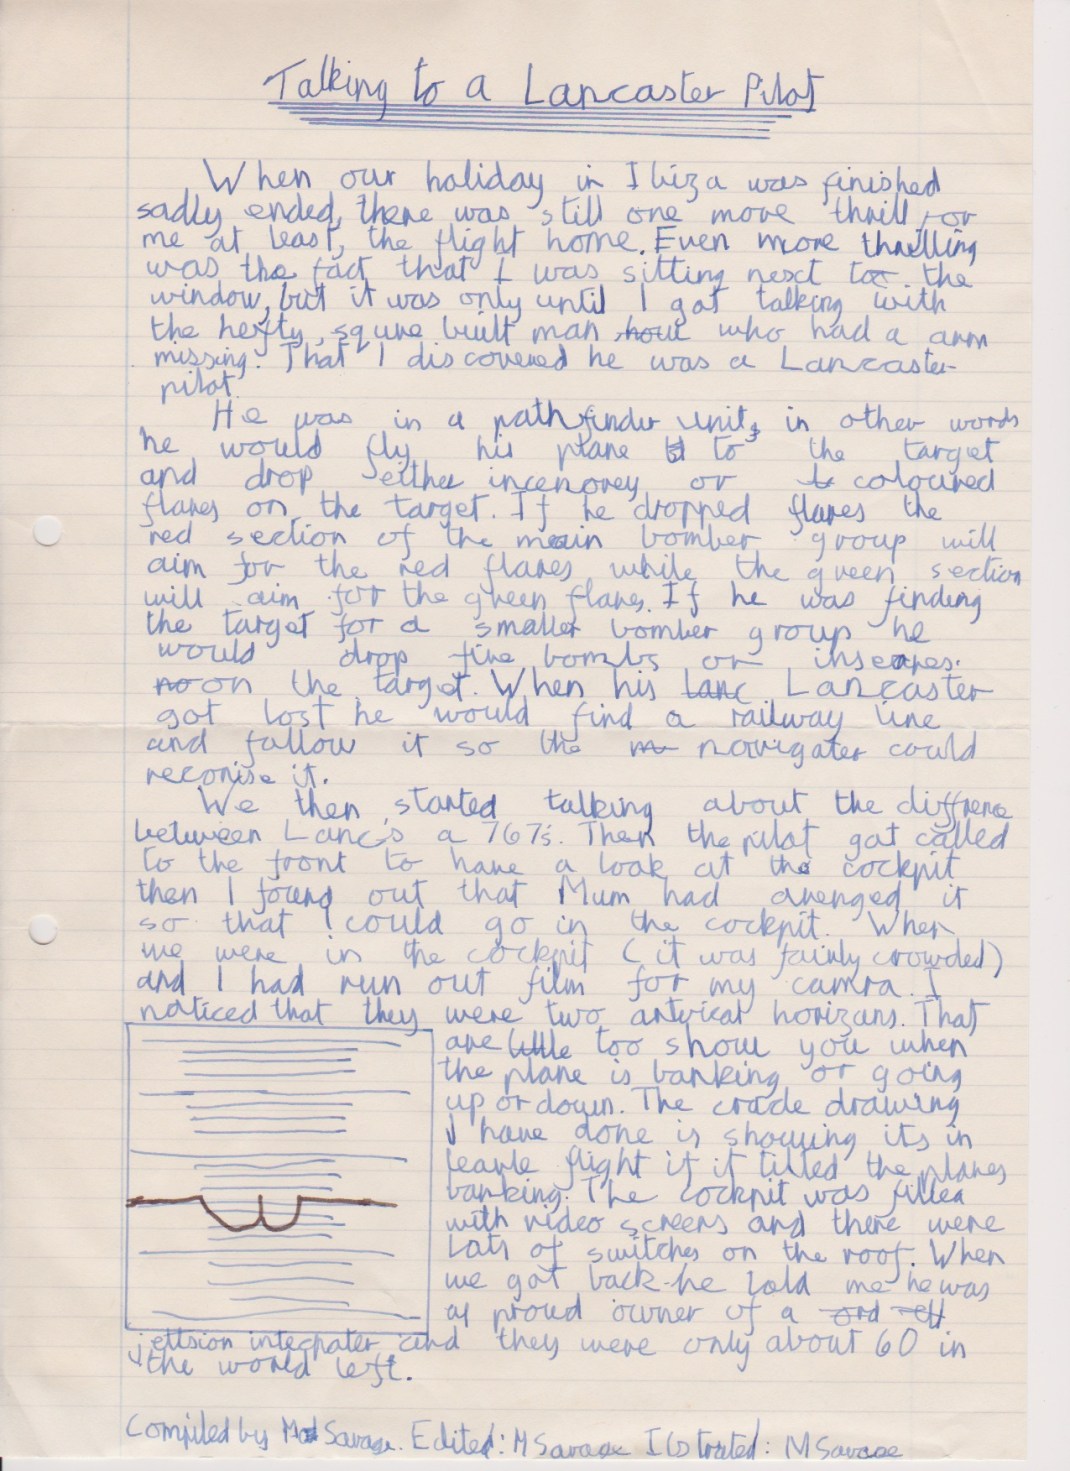 Talking to a Lancaster Pilot
When our holiday in Ibiza was finished
sadly ended, there was still one more thrill, for
me at least, the flight home. Even more thrilling
was the fact that I was sitting next too the
window, but it was only until I got talking with
the hefty, squre built man who had a arm
missing. That I discovered he was a Lancaster
pilot.
He was in a pathfinder unit, in other words
he would fly his plane to the target
and drop either incenorey or coloured
flares on the target. If he dropped flares the
red section of the main bomber group will
aim for the red flares while the green section
will aim for the green flares. If he was finding
the target for a smaller bomber group he
would drop fire bombs or
on the target. When his Lancaster
got lost he would find a railway line
and follow it so the navigater could
reconise it.
We then started talking about the diffrene
between Lanc's a 767's. Then the pilot got called
to the front to have a look at the cockpit
then I found out that Mum had arenged it
so that I could go in the cockpit. When
we were in the cockpit (it was fairly crowded)
and I had run out film for my camra. I
noticed that they were two artvicat horizans. That
are little too show you when
the plane is banking or going
up or down. The crade drawing
I have done is showing its in
leavle flight if it tilted the planes
banking. The cockpit was filled
with video screens and there were
Lots of switches on the roof. When
we got back he told me he was
a proud owner of a
jettsion integrater and they were only about 60 in
the world left.
Compiled by M Savage. Edited: M Savage Ilstrated: M Savage